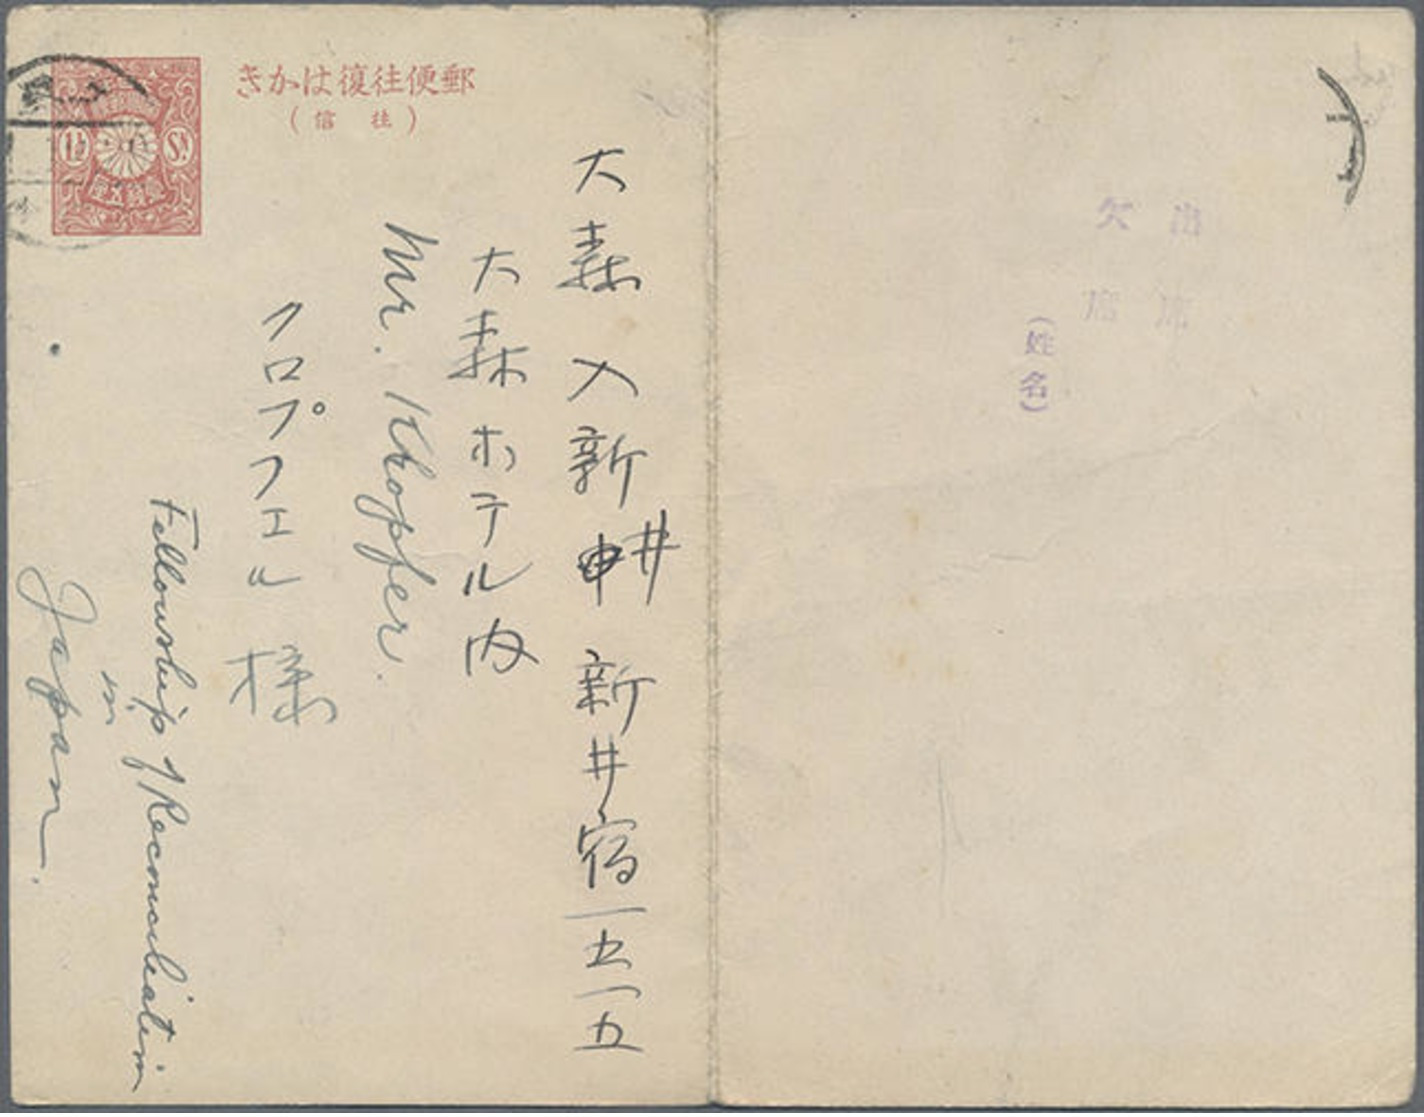 きかは復往便郵
(信 往)
1½ Sn
大森 入新井 新井宿一五一五
大森ホテル内
Mr. Khopfer.
クロプフェル 様
Fellowship of Reconciliation
in
Japan.
出席
欠席
(姓名)